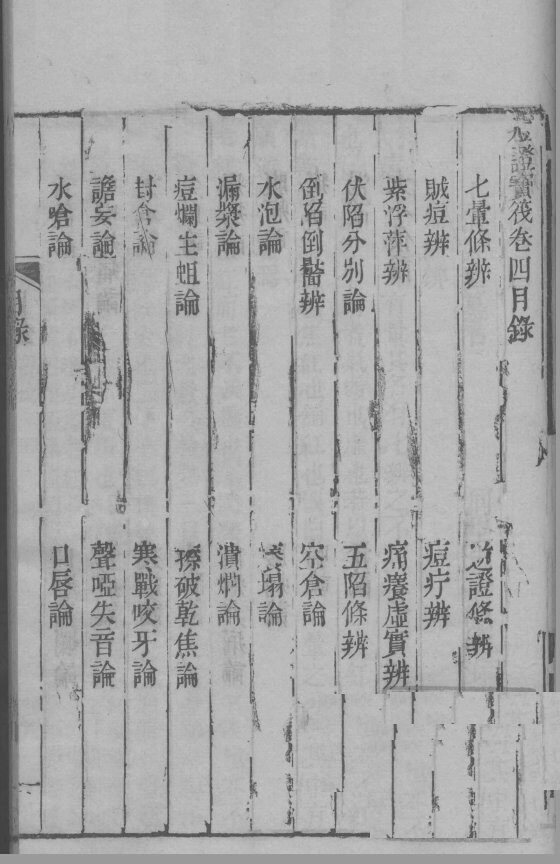 證寶筏卷四目錄
七暈條辨
證條辨
賊痘辨
痘疔辨
紫浮萍辨
痛癢虛實辨
伏陷分別論
五陷條辨
倒陷倒靨辨
空倉論
水泡論
塌論
漏漿論
潰爛論
痘爛生蛆論
擦破乾焦論
封倉論
寒戰咬牙論
譫妄論
聲啞失音論
水嗆論
口唇論
目錄